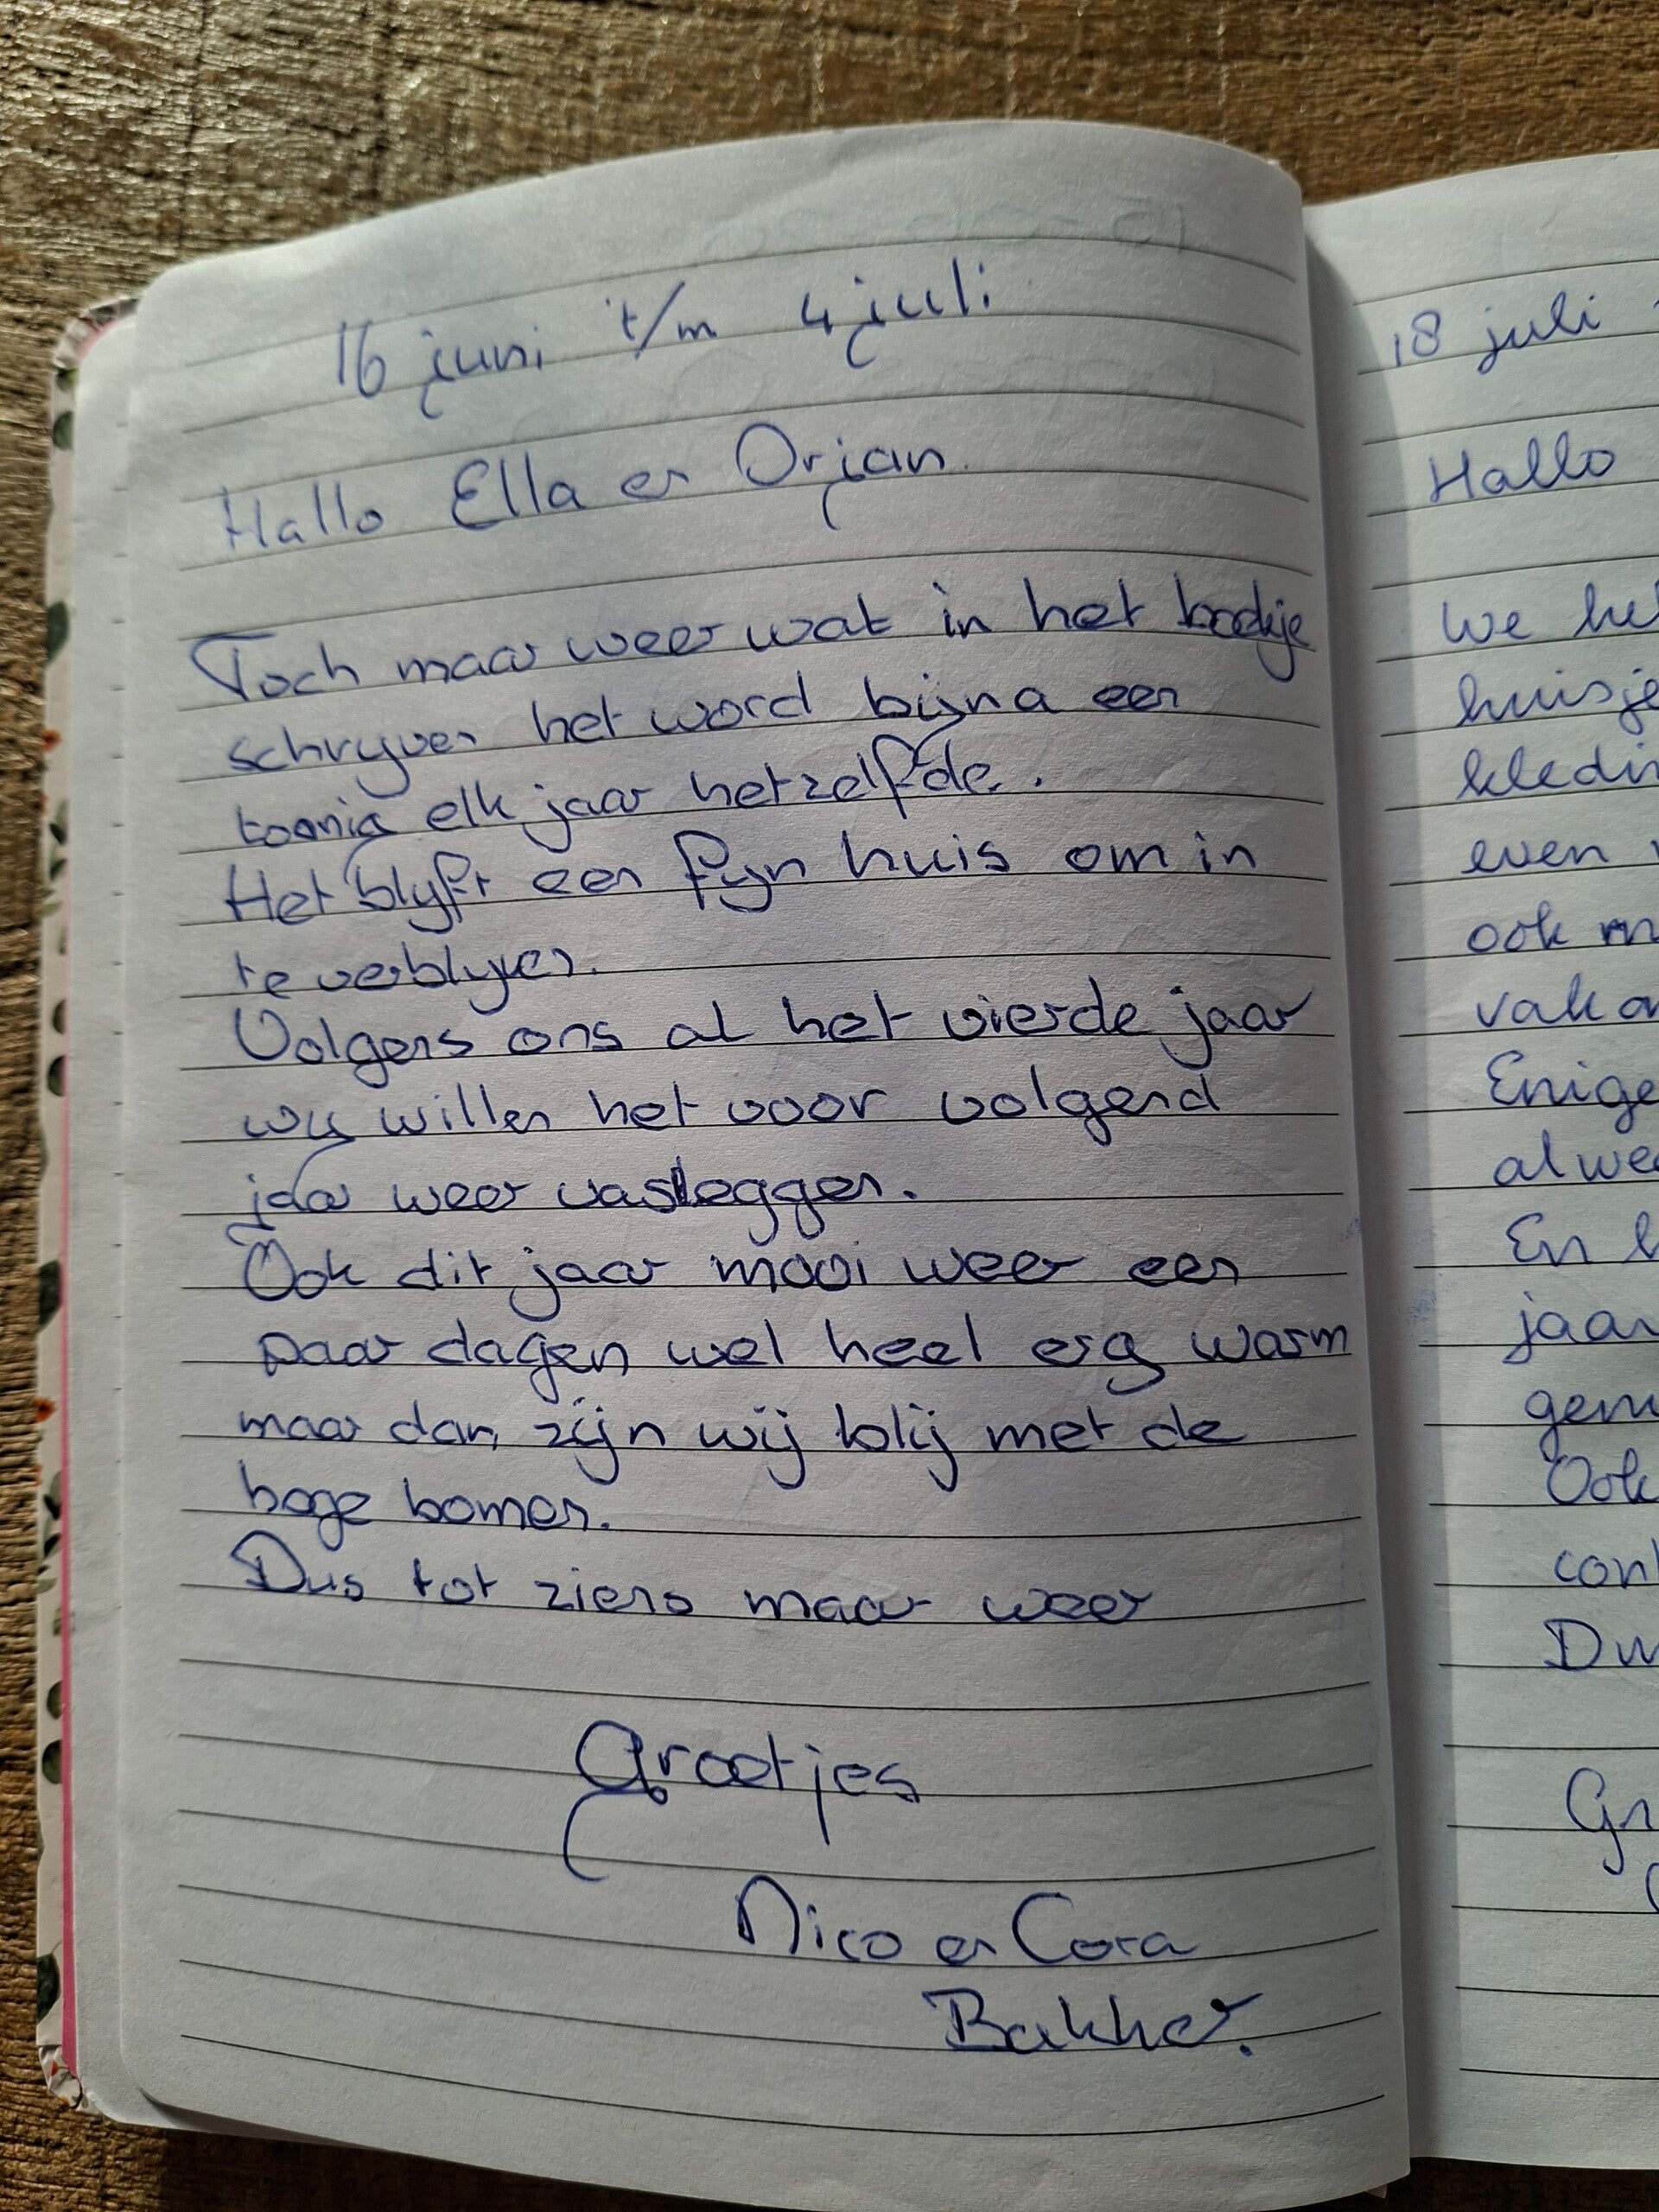 16 juni t/m 4 juli
Hallo Ella en Orjan.
Toch maar weer wat in het boekje
schryven het word bijna een
toonig elk jaar hetzelfde.
Het blyft een fyn huis om in
te verblyven.
Volgens ons al het vierde jaar
wy willen het voor volgend
jaar weer vasleggen.
Ook dit jaar mooi weer een
paar dagen wel heel erg warm
maar dan zijn wij blij met de
hoge bomen.
Dus tot ziens maar weer
Groetjes
Nico en Cora
Bakker.
18 juli
Hallo
We he
huisje
kledin
even
ook m
vaka
Enige
alwe
En h
jaar
gen
Ook
con
Du
Gr